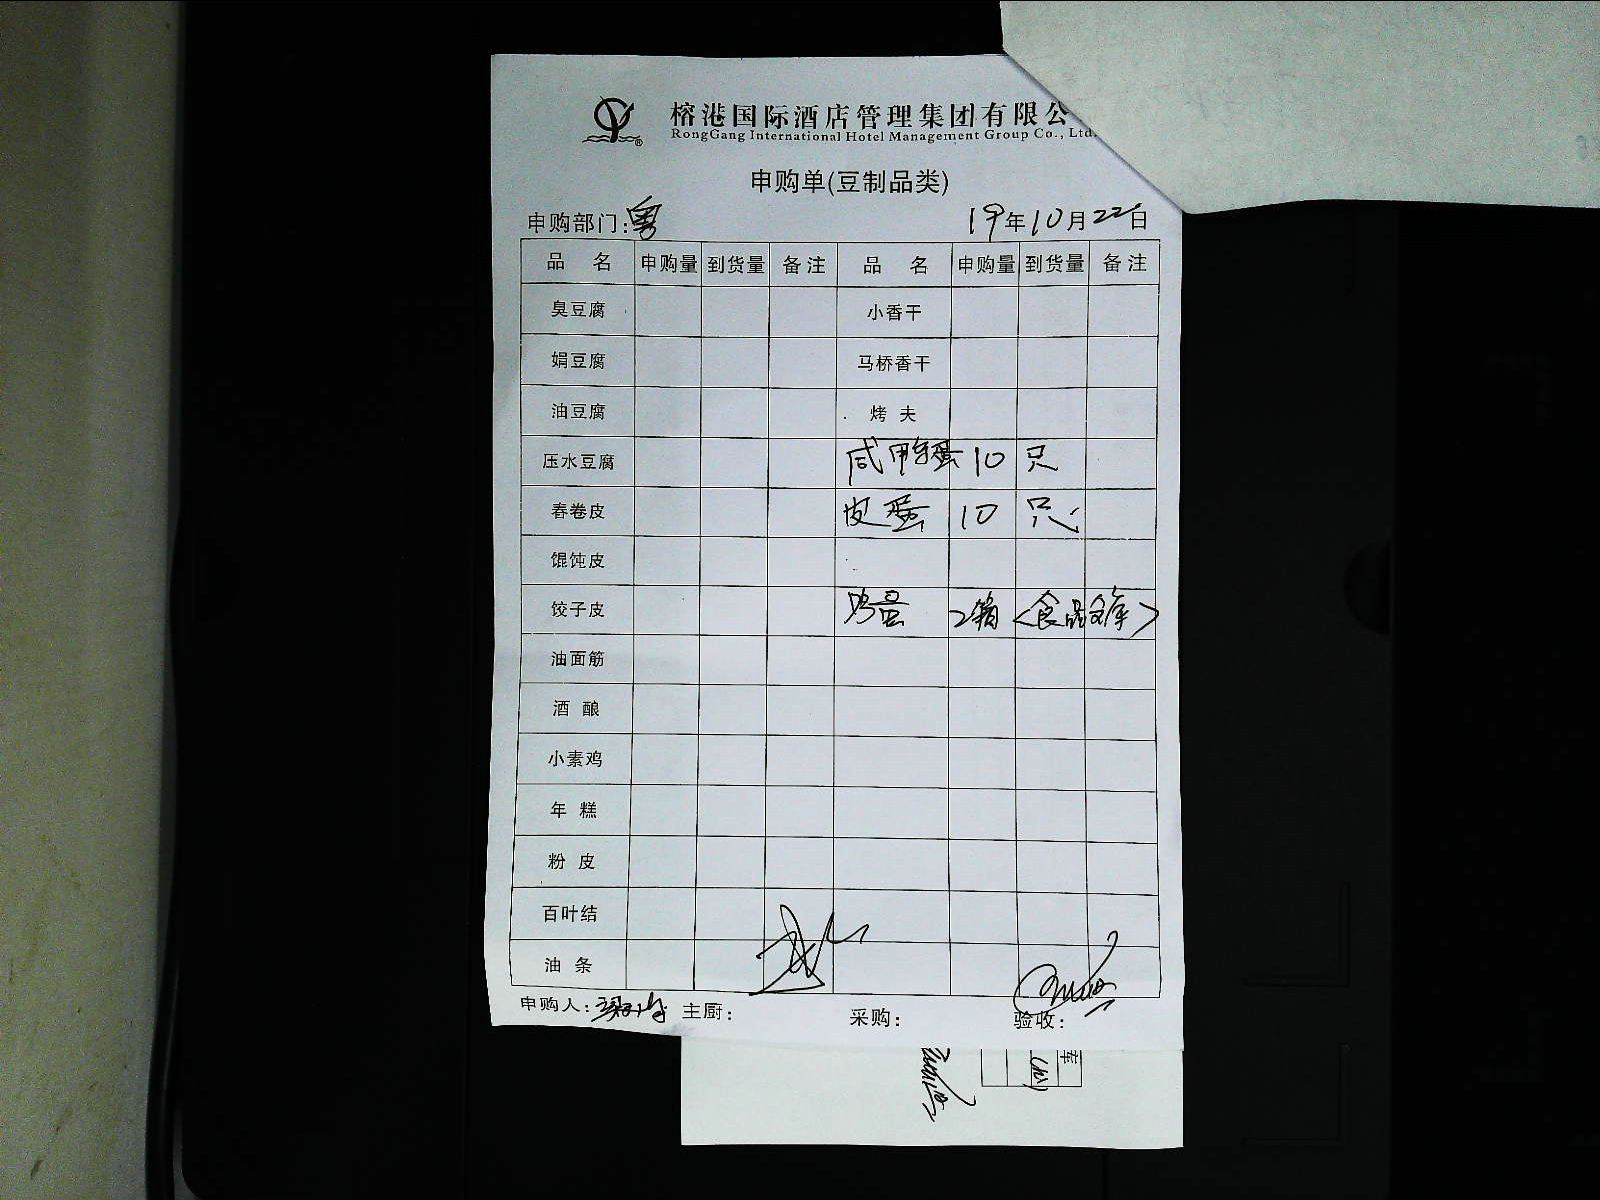 榕港国际酒店管理集团有限公
RongGang International Hotel Management Group Co., Ltd.
申购单(豆制品类)
申购部门:粤 19年10月22日
品 名 申购量 到货量 备注 品 名 申购量 到货量 备注
臭豆腐 小香干
娟豆腐 马桥香干
油豆腐 烤 夫
压水豆腐 咸鸭蛋 10 只
春卷皮 皮蛋 10 只
馄饨皮
饺子皮 鸡蛋 2箱 <食品仓库>
油面筋
酒 酿
小素鸡
年 糕
粉 皮
百叶结
油 条
申购人: 主厨: 采购: 验收:
库